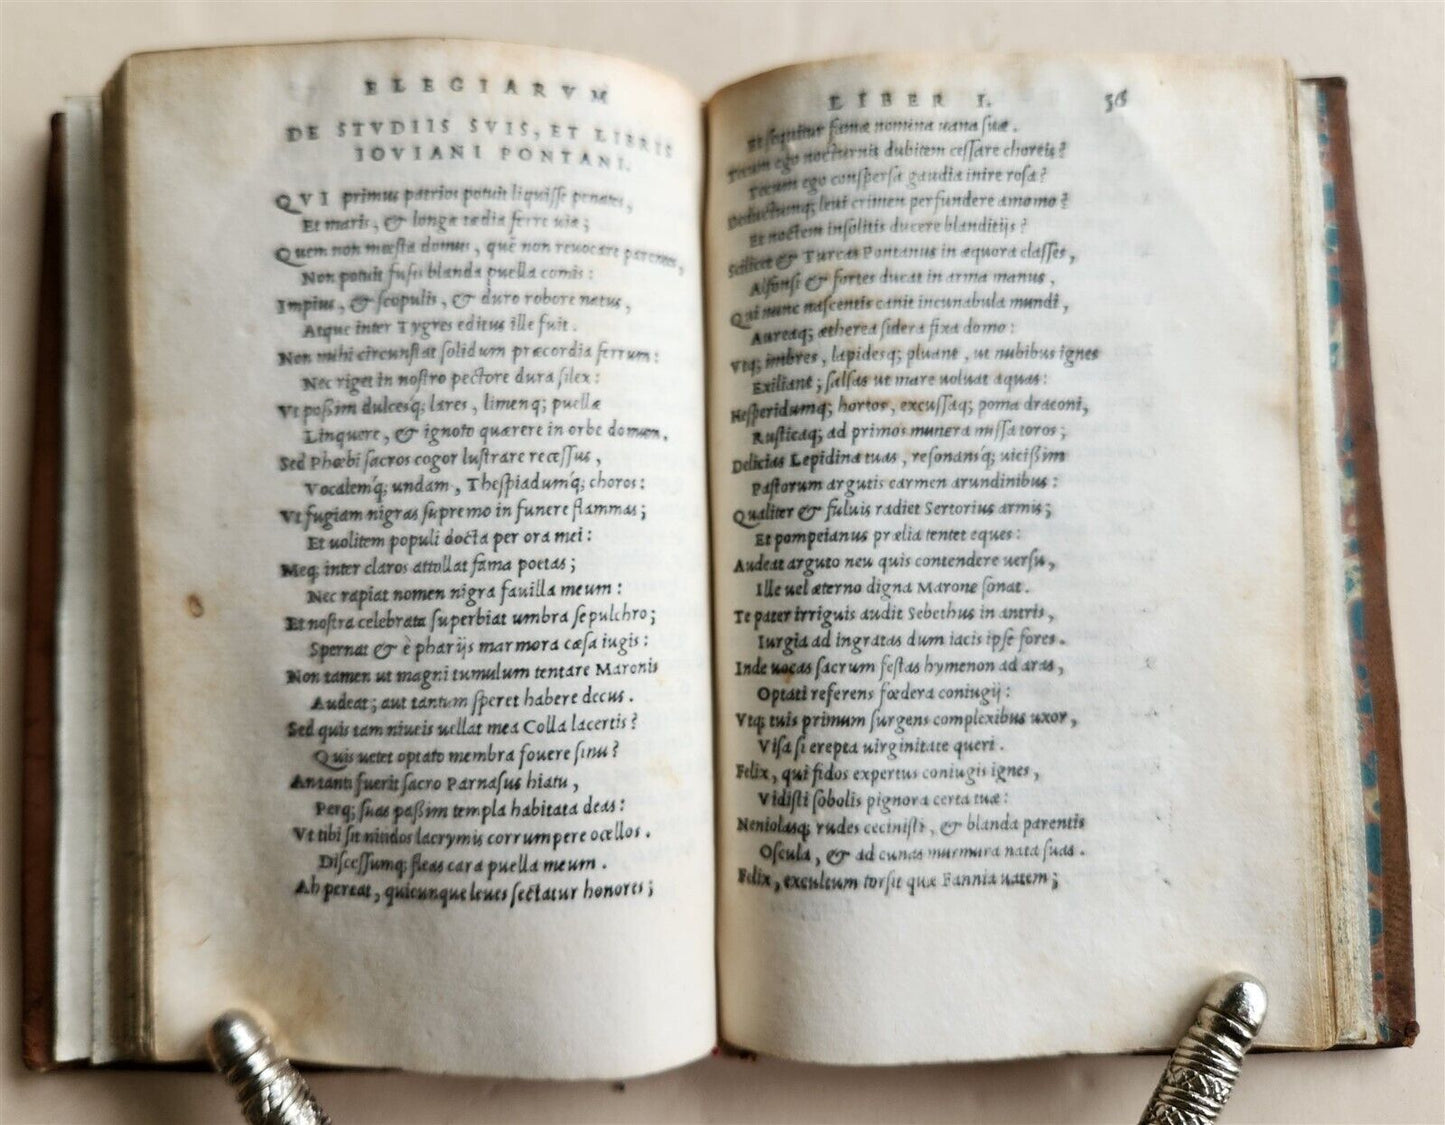 ELEGIARVM
DE STVDIIS SVIS, ET LIBRIS
IOVIANI PONTANI.
QVI primus patrios potuit liquisse penates,
Et maris, & longæ tædia ferre uiæ;
Quem non mœsta domus, quẽ non reuocare parentes,
Non potuit fusis blanda puella comis:
Impius, & scopulis, & duro robore natus,
Atque inter Tygres editus ille fuit.
Non mihi circunstat solidum præcordia ferrum:
Nec riget in nostro pectore dura silex:
Vt possim dulcesq; lares, limenq; puellæ
Linquere, & ignoto quærere in orbe domum.
Sed Phœbi sacros cogor lustrare recessus,
Vocalemq́; undam, Thespiadumq́; choros:
Vt fugiam nigras supremo in funere flammas;
Et uolitem populi docta per ora mei:
Meq; inter claros attollat fama poetas;
Nec rapiat nomen nigra fauilla meum:
Et nostra celebrata superbiat umbra sepulchro;
Spernat & è pharijs marmora cæsa iugis:
Non tamen ut magni tumulum tentare Maronis
Audeat; aut tantum speret habere decus.
Sed quis tam niueis uellat mea Colla lacertis?
Quis uetet optato membra fouere sinu?
Antanti fuerit sacro Parnasus hiatu,
Perq; suas passim templa habitata deas:
Vt tibi sit nitidos lacrymis corrumpere ocellos.
Discessumq; fleas cara puella meum.
Ah pereat, quicunque leues sectatur honores;
LIBER I. 36
Et sequitur famæ nomina uana suæ.
Tecum ego nocturnis dubitem cessare choreis?
Tecum ego conspersa gaudia inire rosa?
Deductumq; leui crimen perfundere amomo?
Et noctem insolitis ducere blanditijs?
Scilicet & Turcas Pontanus in æquora classes,
Alfonsi & fortes ducat in arma manus,
Qui nunc nascentis canit incunabula mundi,
Aureaq; ætherea sidera fixa domo:
Vtq; imbres, lapidesq; pluant, ut nubibus ignes
Exiliant; salsas ut mare uoluat aquas:
Hesperidumq; hortos, excussaq; poma draconi,
Rusticaq; ad primos munera missa toros;
Delicias Lepidina tuas, resonansq́; uicissim
Pastorum argutis carmen arundinibus:
Qualiter & fuluis radiet Sertorius armis;
Et pompeianus prælia tentet eques:
Audeat arguto neu quis contendere uersu,
Ille uel æterno digna Marone sonat.
Te pater irriguis audit Sebethus in antris,
Iurgia ad ingratas dum iacis ipse fores.
Inde uocas sacrum festas hymenon ad aras,
Optati referens fœdera coniugij:
Vtq; tuis primum surgens complexibus uxor,
Visa si erepta uirginitate queri.
Felix, qui fidos expertus coniugis ignes,
Vidisti sobolis pignora certa tuæ:
Neniolasq; rudes cecinisti, & blanda parentis
Oscula, & ad cunas murmura nata suas.
Felix, excultum torsit quæ Fannia uatem;